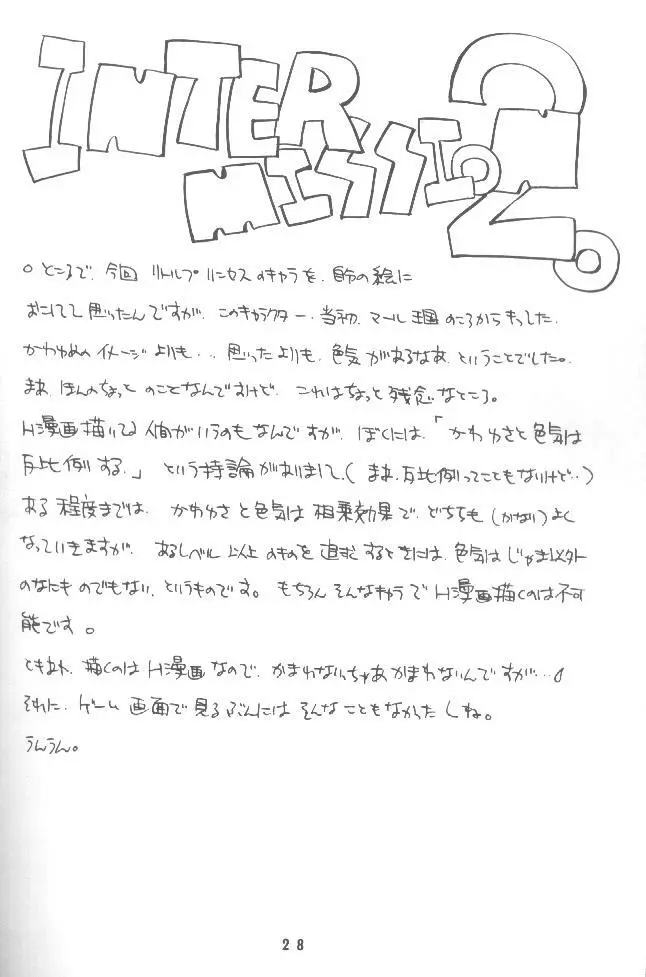 INTER
MISSION 2。
○ところで、今回 リトルプリンセスのキャラを、自分の絵に
おこしてて思ったんですが、このキャラクター、当初、マール王国のころからもってた
かわゆめのイメージよりも、、思ったよりも、色気があるなあ、ということでした。
まあ、ほんのちょっとのことなんですけど、これはちょっと残念なところ。
H漫画描いてる人間がいうのもなんですが、ぼくには、「かわゆさと色気は
反比例する。」という持論がありまして、(まあ、反比例ってこともないけど…)
ある程度までは、かわゆさと色気は相乗効果で、どちらも(かなり)よく
なっていきますが、あるレベル以上のものを追求するときには、色気はじゃま以外
のなにものでもない、というものです。もちろんそんなキャラでH漫画描くのは不可
能です。
ともあれ、描くのはH漫画なので、かまわないっちゃあかまわないんですが…
それに、ゲーム画面で見るぶんにはそんなこともなかったしね。
うんうん。
28